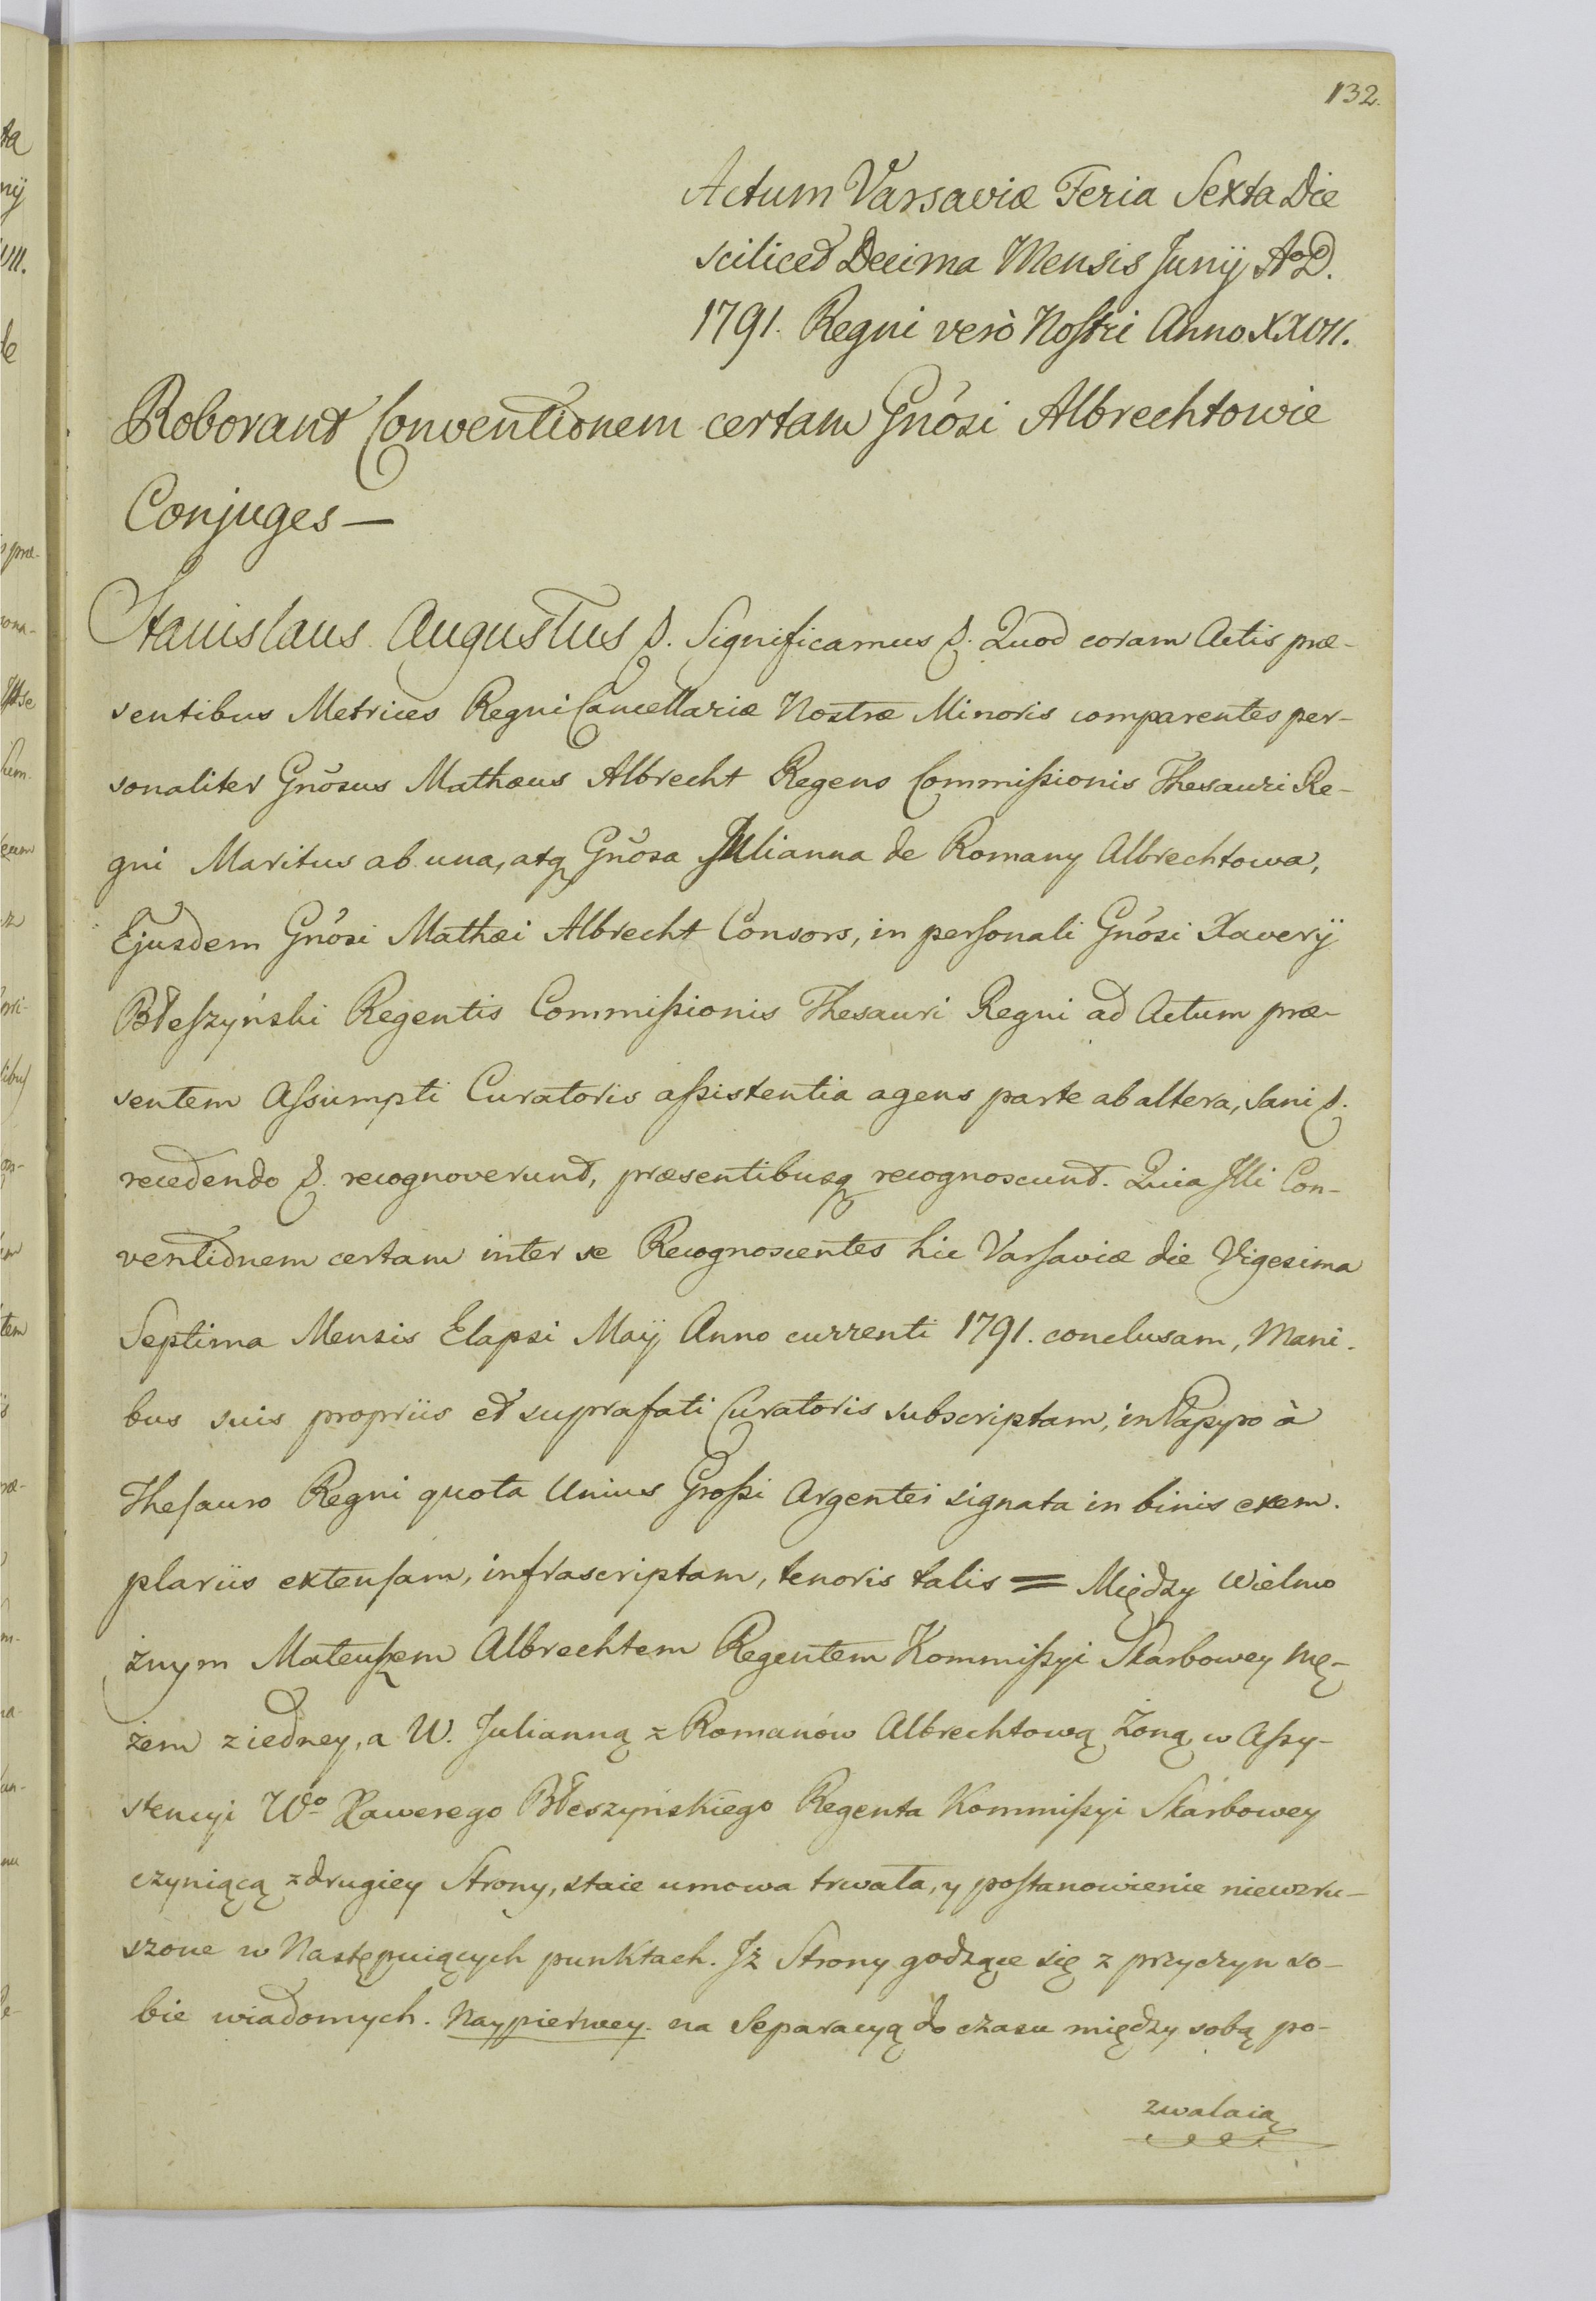 132.
Actum Varsaviæ Feria Sexta Die
sciliced Decima Mensis Junij A⁰D.
1791. Regni verò Nostri Anno XXVII.
Roborant Conventionem certam Gnõsi Albrechtowie
Conjuges —
Stanislaus Augustus &. Significamus &. Quod coram Actis præ-
sentibus Metrices Regni Cancellariæ Nostræ Minoris comparentes per-
sonaliter Gnõsus Mathæus Albrecht Regens Commißionis Thesauri Re-
gni Maritus ab una, atq Gnõsa Julianna de Romany Albrechtowa,
Ejusdem Gnõsi Mathæi Albrecht Consors, in personali Gnõsi Xaverij
Błeszyński Regentis Commißionis Thesauri Regni ad Actum præ-
sentem Assumpti Curatoris aßistentia agens parte ab altera, Sani &.
recedendo &. recognoverunt, præsentibusq recognoscunt. Quia Illi Con-
ventionem certam inter se Recognoscentes hic Varsaviæ die Vigesima
Septima Mensis Elapsi Maij Anno currenti 1791. conclusam, Mani-
bus suis propriis et suprafati Curatoris subscriptam, in Papyro à
Thesauro Regni quota Unius Großi Argentei signata in binis exem-
plariis extensam, infrascriptam, tenoris talis = Między Wielmo
żnym Mateuszem Albrechtem Regentem Kommißyi Skarbowey Mę-
żem z iedney, a W. Julianną z Romanów Albrechtową Żoną w Assy-
stencyi W⁰ Xawerego Błeszyńskiego Regenta Kommißyi Skarbowey
czyniącą z drugiey Strony, staie umowa trwała, y postanowienie niewzru-
szone w Następuiących punktach. Jż Strony godzące się z przyczyn so-
bie wiadomych. Naypierwey. na Separacyą do czasu między sobą po-
zwalaią